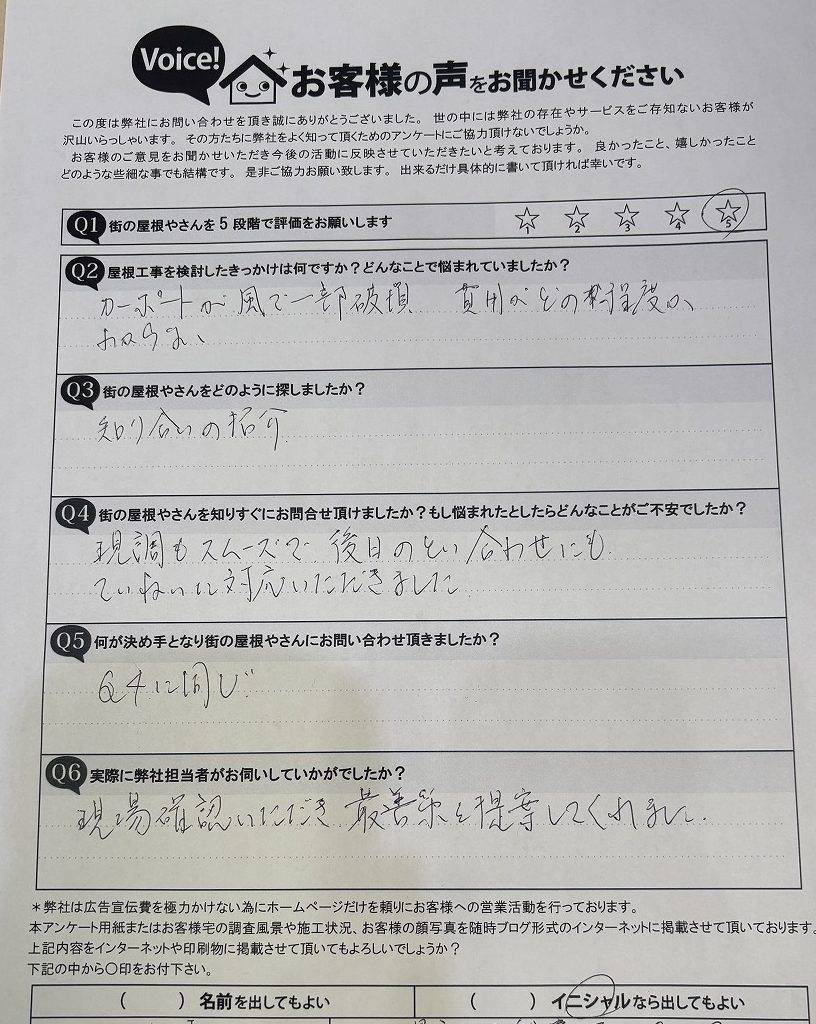 Voice! お客様の声をお聞かせください
この度は弊社にお問い合わせを頂き誠にありがとうございました。 世の中には弊社の存在やサービスをご存知ないお客様が
沢山いらっしゃいます。 その方たちに弊社をよく知って頂くためのアンケートにご協力頂けないでしょうか。
お客様のご意見をお聞かせいただき今後の活動に反映させていただきたいと考えております。 良かったこと、嬉しかったこと
どのような些細な事でも結構です。 是非ご協力お願い致します。 出来るだけ具体的に書いて頂ければ幸いです。
Q1 街の屋根やさんを5段階で評価をお願いします ☆1 ☆2 ☆3 ☆4 ☆5
Q2 屋根工事を検討したきっかけは何ですか?どんなことで悩まれていましたか?
カーポートが風で一部破損 費用がどの程度か、
わからない
Q3 街の屋根やさんをどのように探しましたか?
知り合いの紹介
Q4 街の屋根やさんを知りすぐにお問合せ頂けましたか?もし悩まれたとしたらどんなことがご不安でしたか?
現調もスムーズで 後日のとい合わせにも
ていねいに対応いただきました
Q5 何が決め手となり街の屋根やさんにお問い合わせ頂きましたか?
Q4に同じ
Q6 実際に弊社担当者がお伺いしていかがでしたか?
現場確認いただき 最善策を提案してくれました.
*弊社は広告宣伝費を極力かけない為にホームページだけを頼りにお客様への営業活動を行っております。
本アンケート用紙またはお客様宅の調査風景や施工状況、お客様の顔写真を随時ブログ形式のインターネットに掲載させて頂いております。
上記内容をインターネットや印刷物に掲載させて頂いてもよろしいでしょうか?
下記の中から〇印をお付下さい。
( ) 名前を出してもよい ( ) イニシャルなら出してもよい